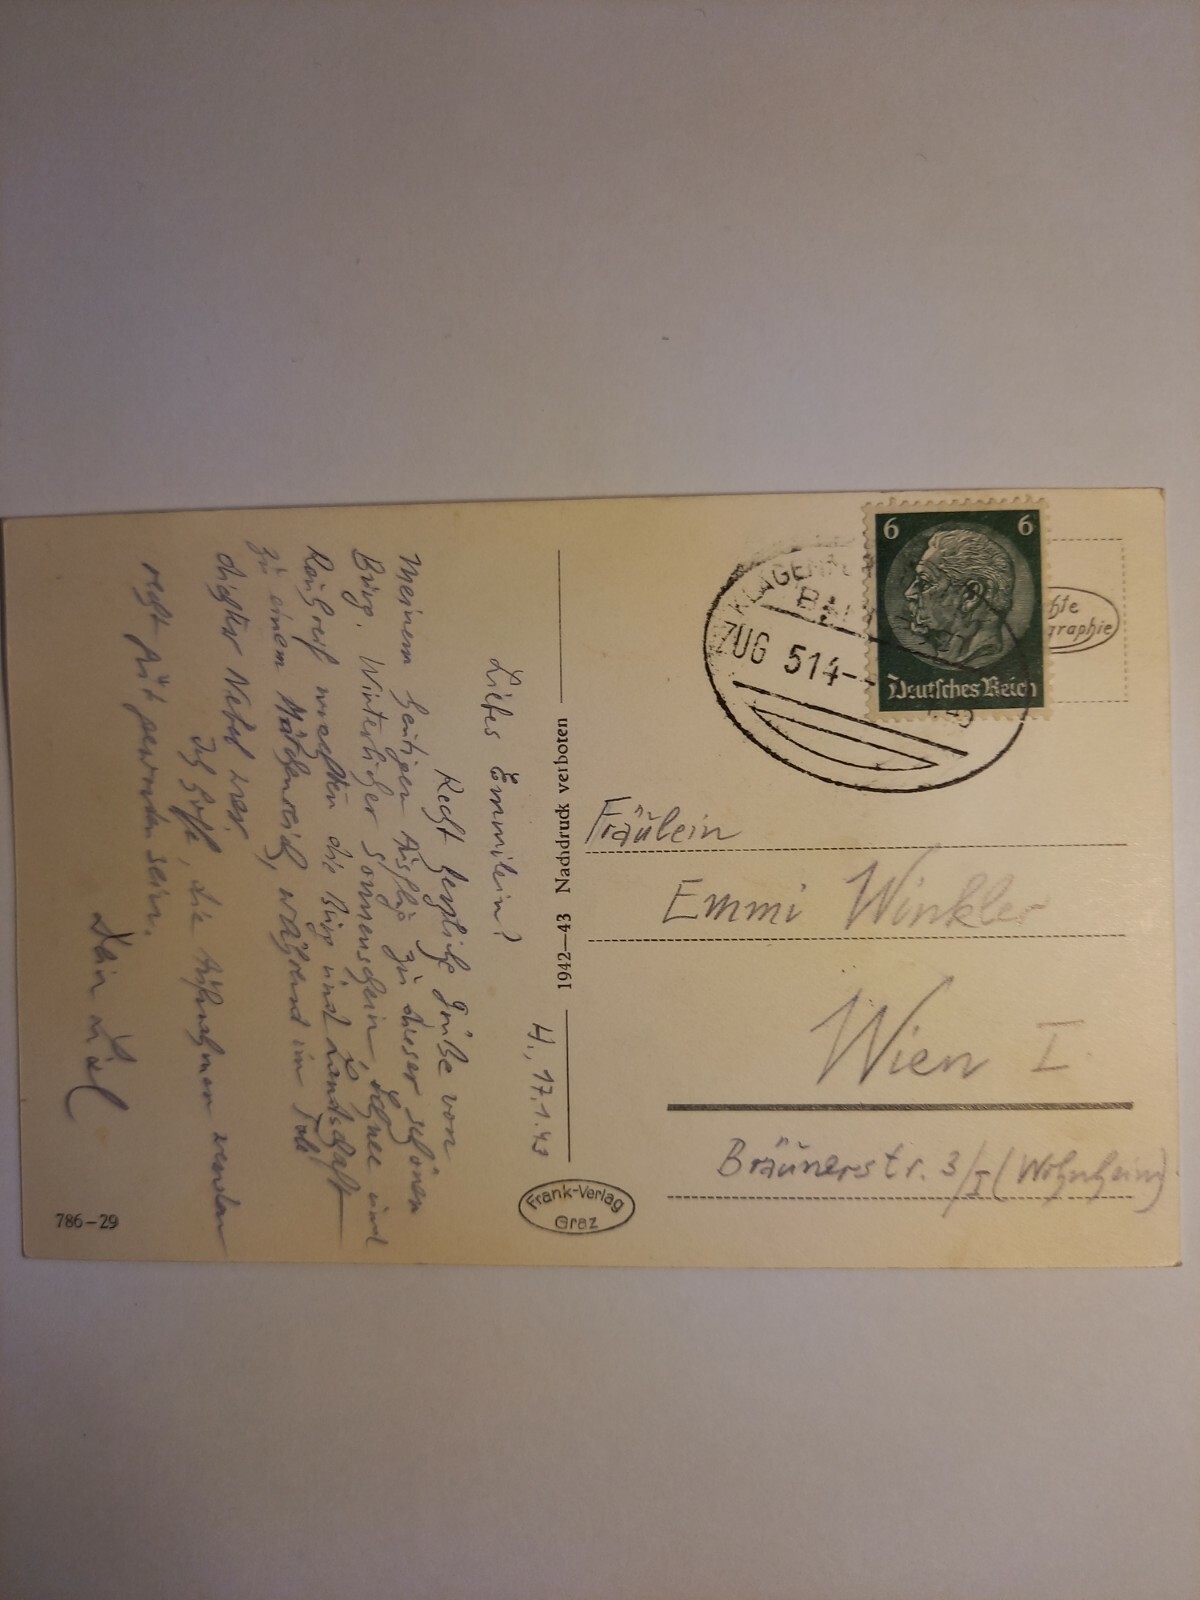 H., 17.1.43
Liebes Emmilein!
Recht herzliche Grüße von
meinem heutigen Ausflug zu dieser schönen
Burg. Winterlicher Sonnenschein, Schnee und
Rauhreif machten die Burg und Landschaft
zu einem Märchenreich, während im Tale
dichter Nebel war.
Ich hoffe, die Aufnahmen werden
recht gut geworden sein.
Dein
786-29
1942-43 Nachdruck verboten
Frank-Verlag
Graz
KLAGENFURT
ZUG 514
6 6
Deutsches Reich
graphie
Fräulein
Emmi Winkler
Wien I.
Bräunerstr. 3/I (Wohnheim)